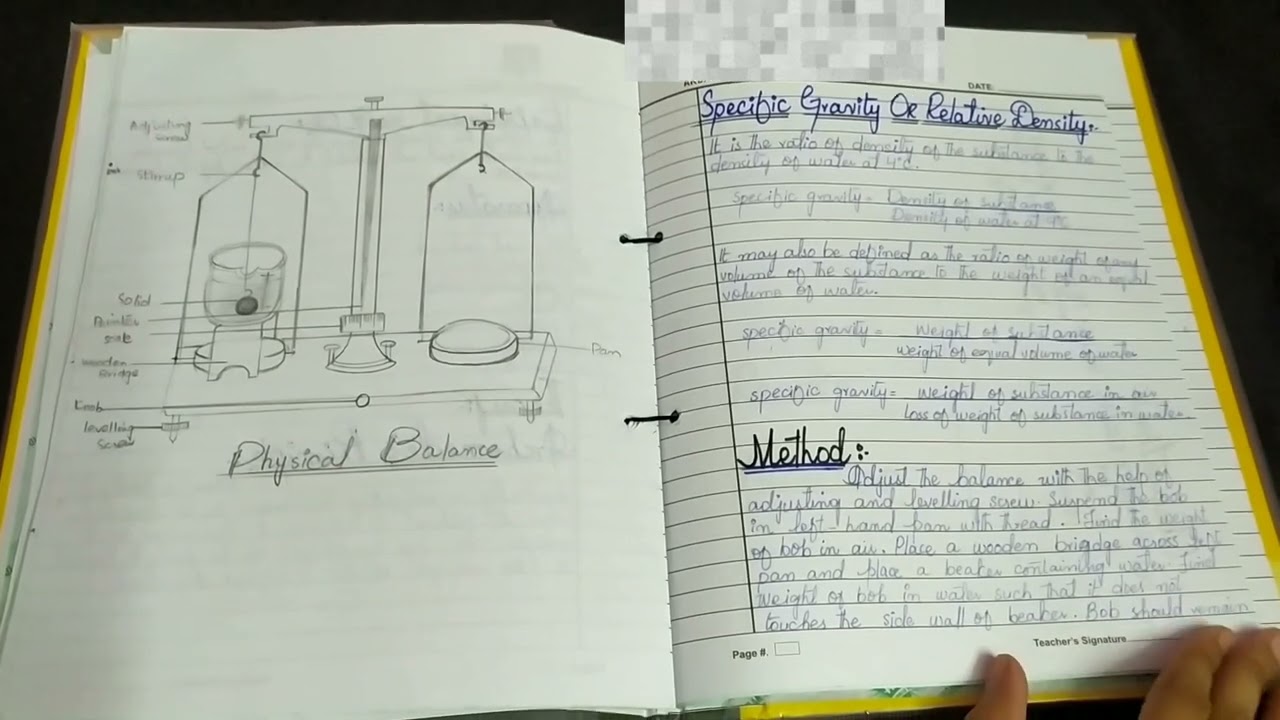 Adjusting
screw
Stirrup
Solid
Pointer
scale
wooden
Bridge
Knob
levelling
Screw
Pan
Physical Balance
DATE
Specific Gravity Or Relative Density:-
It is the ratio of density of the substance to the
density of water at 4°C.
specific gravity = Density of substance
Density of water at 4°C
It may also be defined as the ratio of weight of any
volume of the substance to the weight of an equal
volume of water.
specific gravity = Weight of substance
weight of equal volume of water
specific gravity = weight of substance in air
Loss of weight of substance in water
Method:-
Adjust the balance with the help of
adjusting and levelling screw. Suspend the bob
in left hand pan with thread. Find the weight
of bob in air. Place a wooden briadge across left
pan and place a beaker containing water. Find
weight of bob in water such that it does not
touches the side wall of beaker. Bob should remain
Page #.
Teacher's Signature